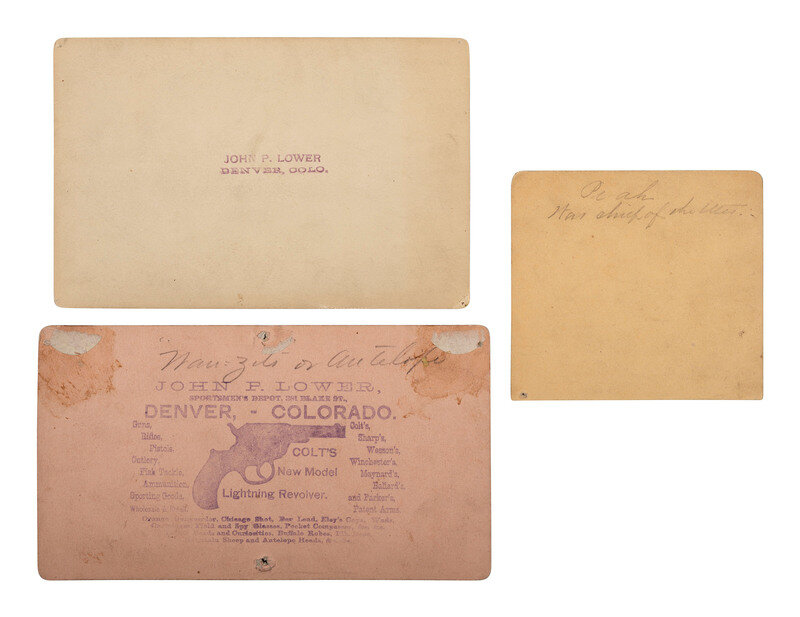 JOHN P. LOWER
DENVER, COLO.
Peah
Was chief of the Utes.
Wan-zits or Antelope
JOHN P. LOWER,
SPORTSMEN'S DEPOT, 381 BLAKE ST.,
DENVER, - COLORADO.
Guns,
Rifles,
Pistols,
Cutlery,
Fish Tackle,
Ammunition,
Sporting Goods,
Wholesale & Retail.
COLT'S
New Model
Lightning Revolver.
Colt's,
Sharp's,
Wesson's,
Winchester's,
Maynard's,
Ballard's,
and Parker's,
Patent Arms.
Orange Gunpowder, Chicago Shot, Bar Lead, Eley's Caps, Wads,
Field and Spy Glasses, Pocket Compasses,
and Curiosities, Buffalo Robes,
Sheep and Antelope Heads,